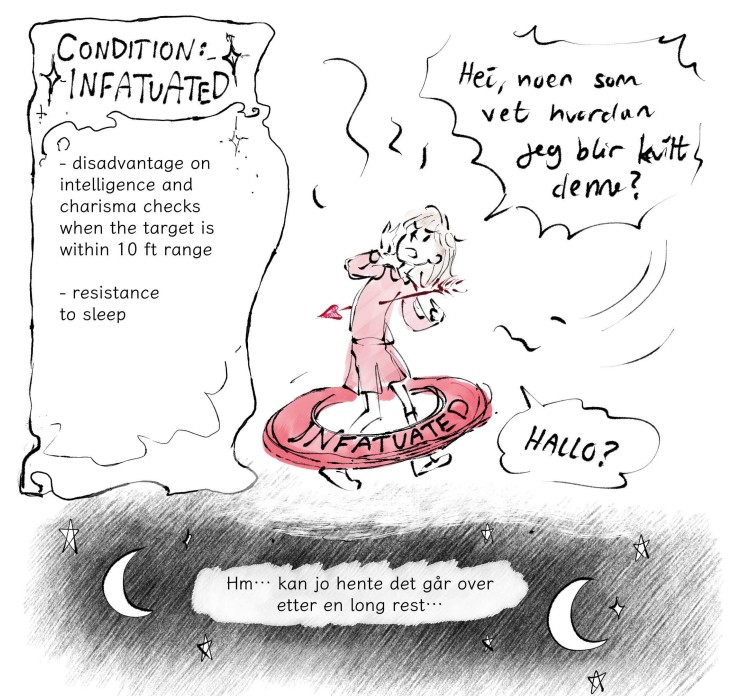 CONDITION:
INFATUATED
- disadvantage on
intelligence and
charisma checks
when the target is
within 10 ft range
- resistance
to sleep
Hei, noen som
vet hvordan
jeg blir kvitt
denne?
INFATUATED
HALLO?
Hm... kan jo hente det går over
etter en long rest...